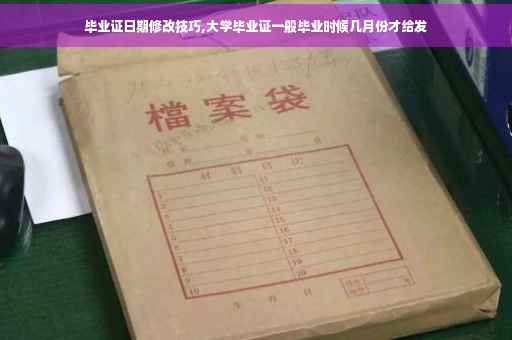 毕业证日期修改技巧,大学毕业证一般毕业时候几月份才给发
檔案袋
材料目次
1 11
2 12
3 13
4 14
5 15
6 16
7 17
8 18
9 19
10 20
年 月 日